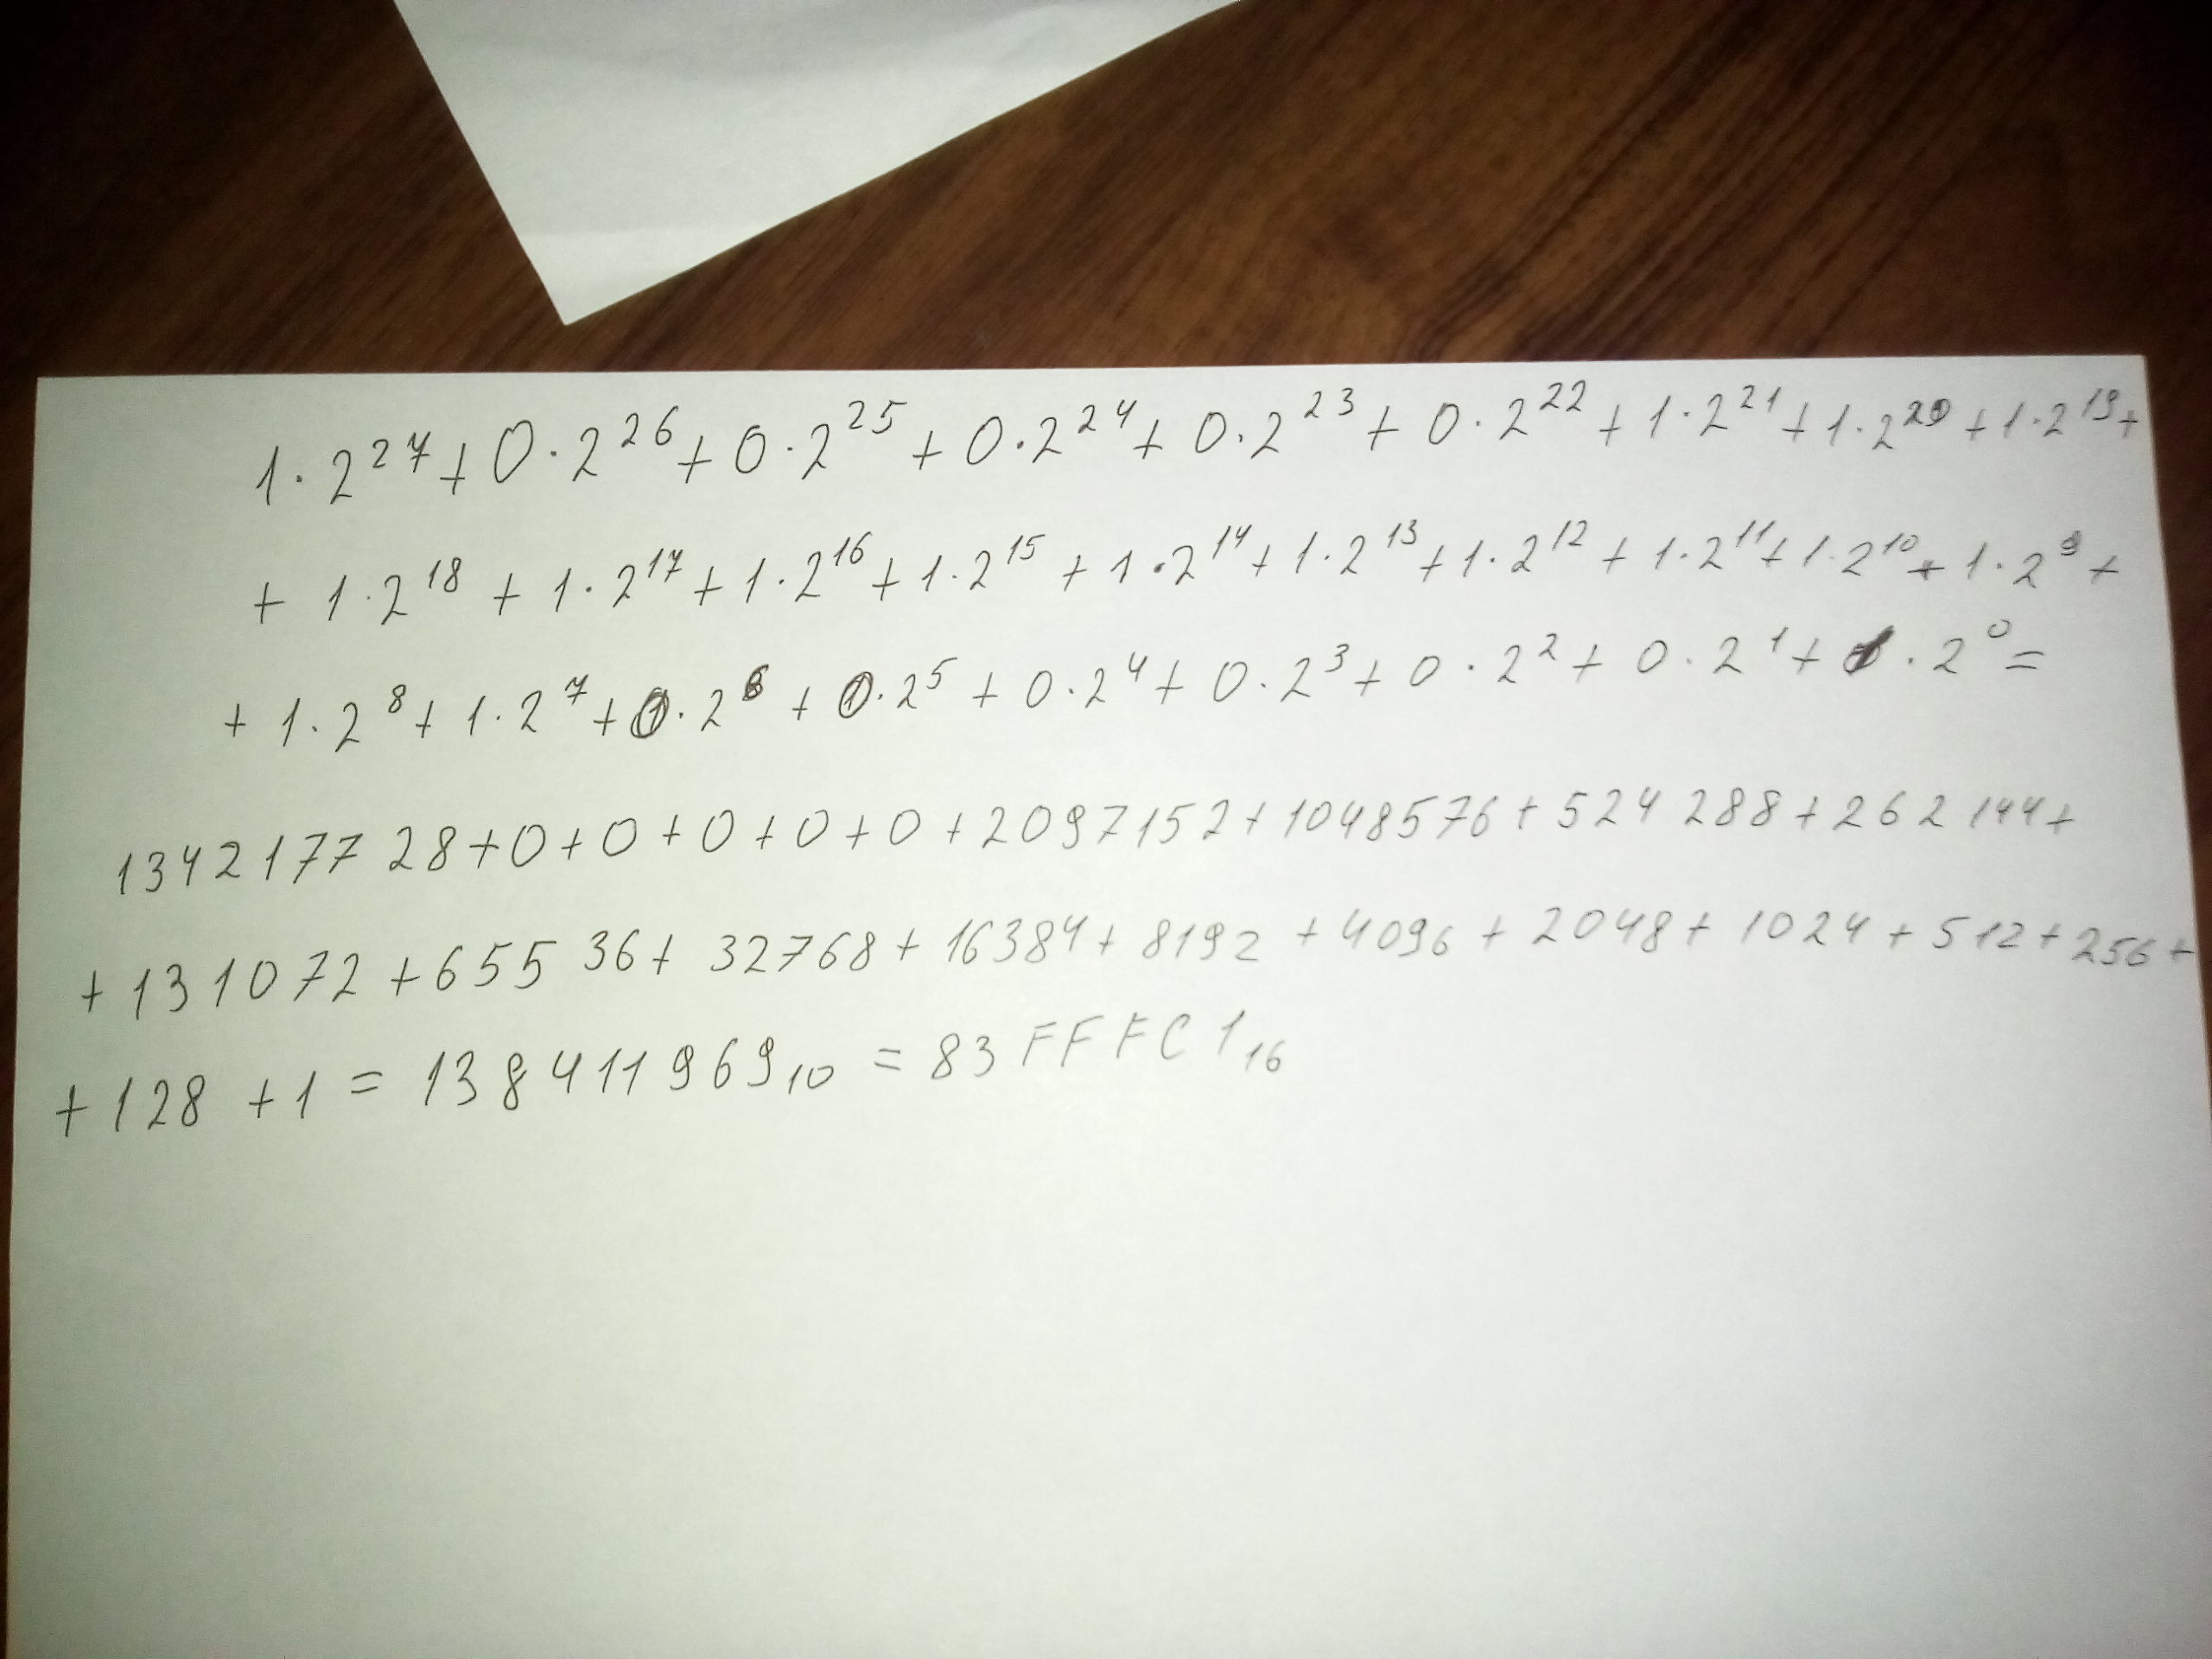 1·2²⁷+0·2²⁶+0·2²⁵+0·2²⁴+0·2²³+0·2²²+1·2²¹+1·2²⁰+1·2¹⁹+
+1·2¹⁸+1·2¹⁷+1·2¹⁶+1·2¹⁵+1·2¹⁴+1·2¹³+1·2¹²+1·2¹¹+1·2¹⁰+1·2⁹+
+1·2⁸+1·2⁷+0·2⁶+0·2⁵+0·2⁴+0·2³+0·2²+0·2¹+1·2⁰=
134217728+0+0+0+0+0+2097152+1048576+524288+262144+
+131072+65536+32768+16384+8192+4096+2048+1024+512+256+
+128+1=138411969₁₀=83FFFC1₁₆